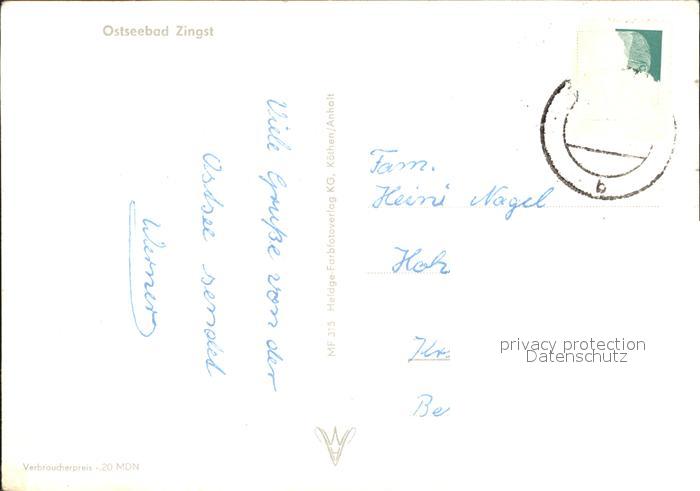 Ostseebad Zingst
Viele Grüße von der
Ostsee sendet
Werner
MF 315 Heldge-Farbfotoverlag KG, Köthen/Anhalt
Fam.
Heini Nagel
Holz
Kr
Be
privacy protection
Datenschutz
b
Verbraucherpreis -,20 MDN